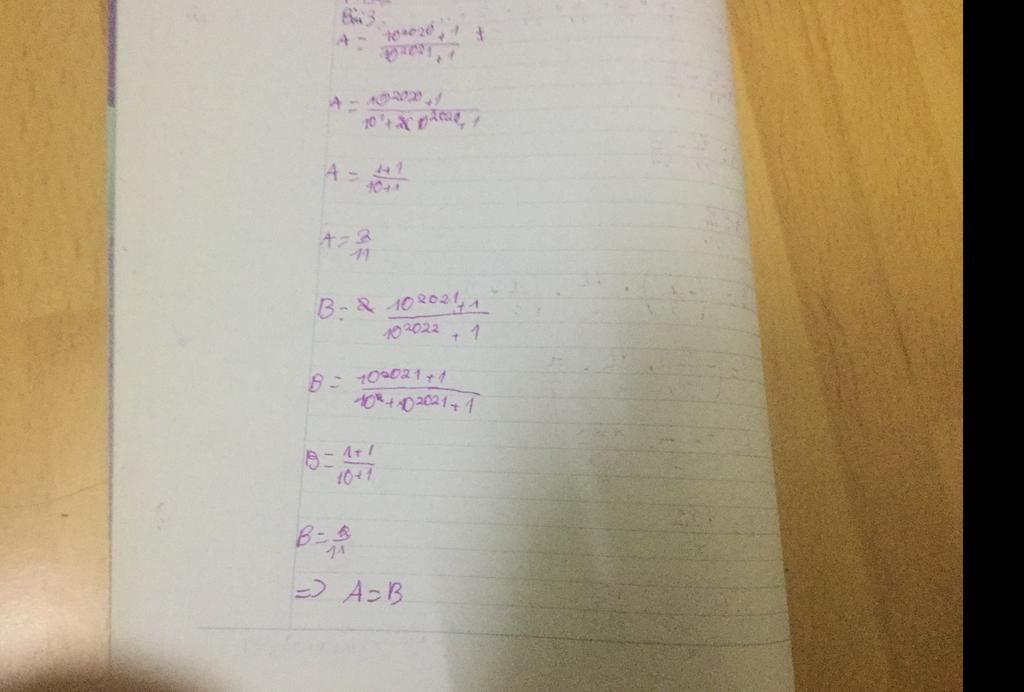 Bài 3
A = \frac{10^{2020}+1}{10^{2021}+1}
A = \frac{10^{2020}+1}{10^{1}+10^{2020}+1}
A = \frac{1+1}{10+1}
A = \frac{2}{11}
B = \frac{10^{2021}+1}{10^{2022}+1}
B = \frac{10^{2021}+1}{10^{1}+10^{2021}+1}
B = \frac{1+1}{10+1}
B = \frac{2}{11}
=> A = B